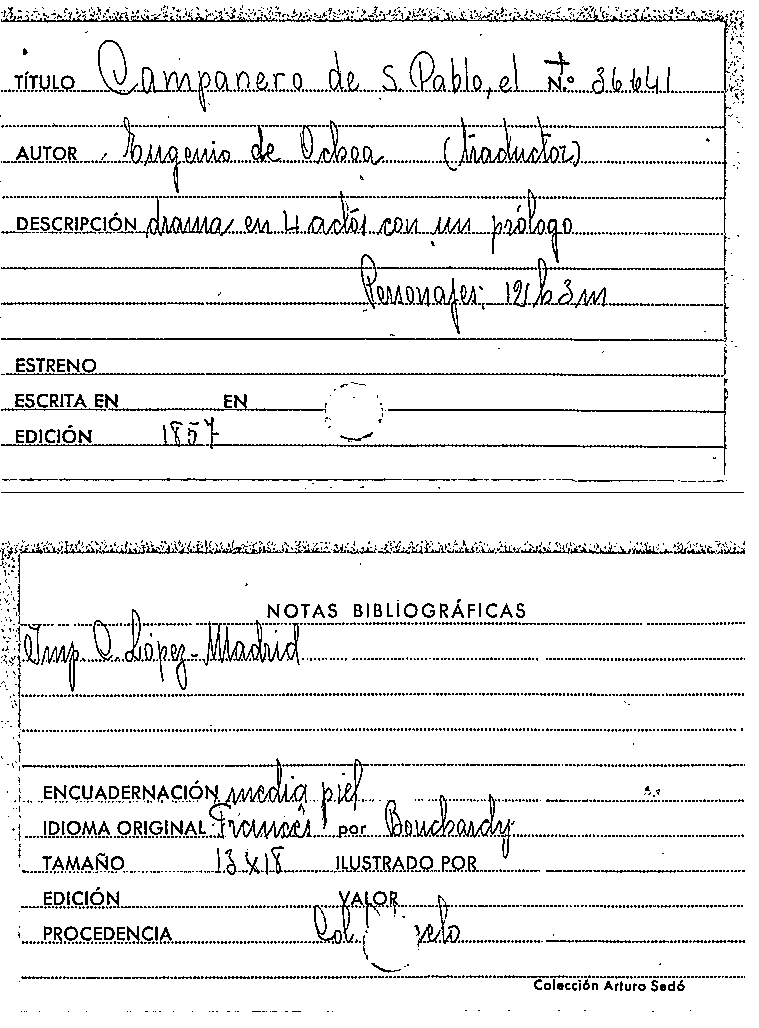 TÍTULO Campanero de S. Pablo, el N.º 36641
AUTOR Eugenio de Ochoa (traductor)
DESCRIPCIÓN drama en 4 actos con un prólogo
Personajes: 12 h 3 m
ESTRENO
ESCRITA EN EN
EDICIÓN 1857
NOTAS BIBLIOGRÁFICAS
Imp. C. López - Madrid
ENCUADERNACIÓN media piel
IDIOMA ORIGINAL Francés por Bouchardy
TAMAÑO 13 X 18 ILUSTRADO POR
EDICIÓN VALOR
PROCEDENCIA Col.
Colección Arturo Sedó